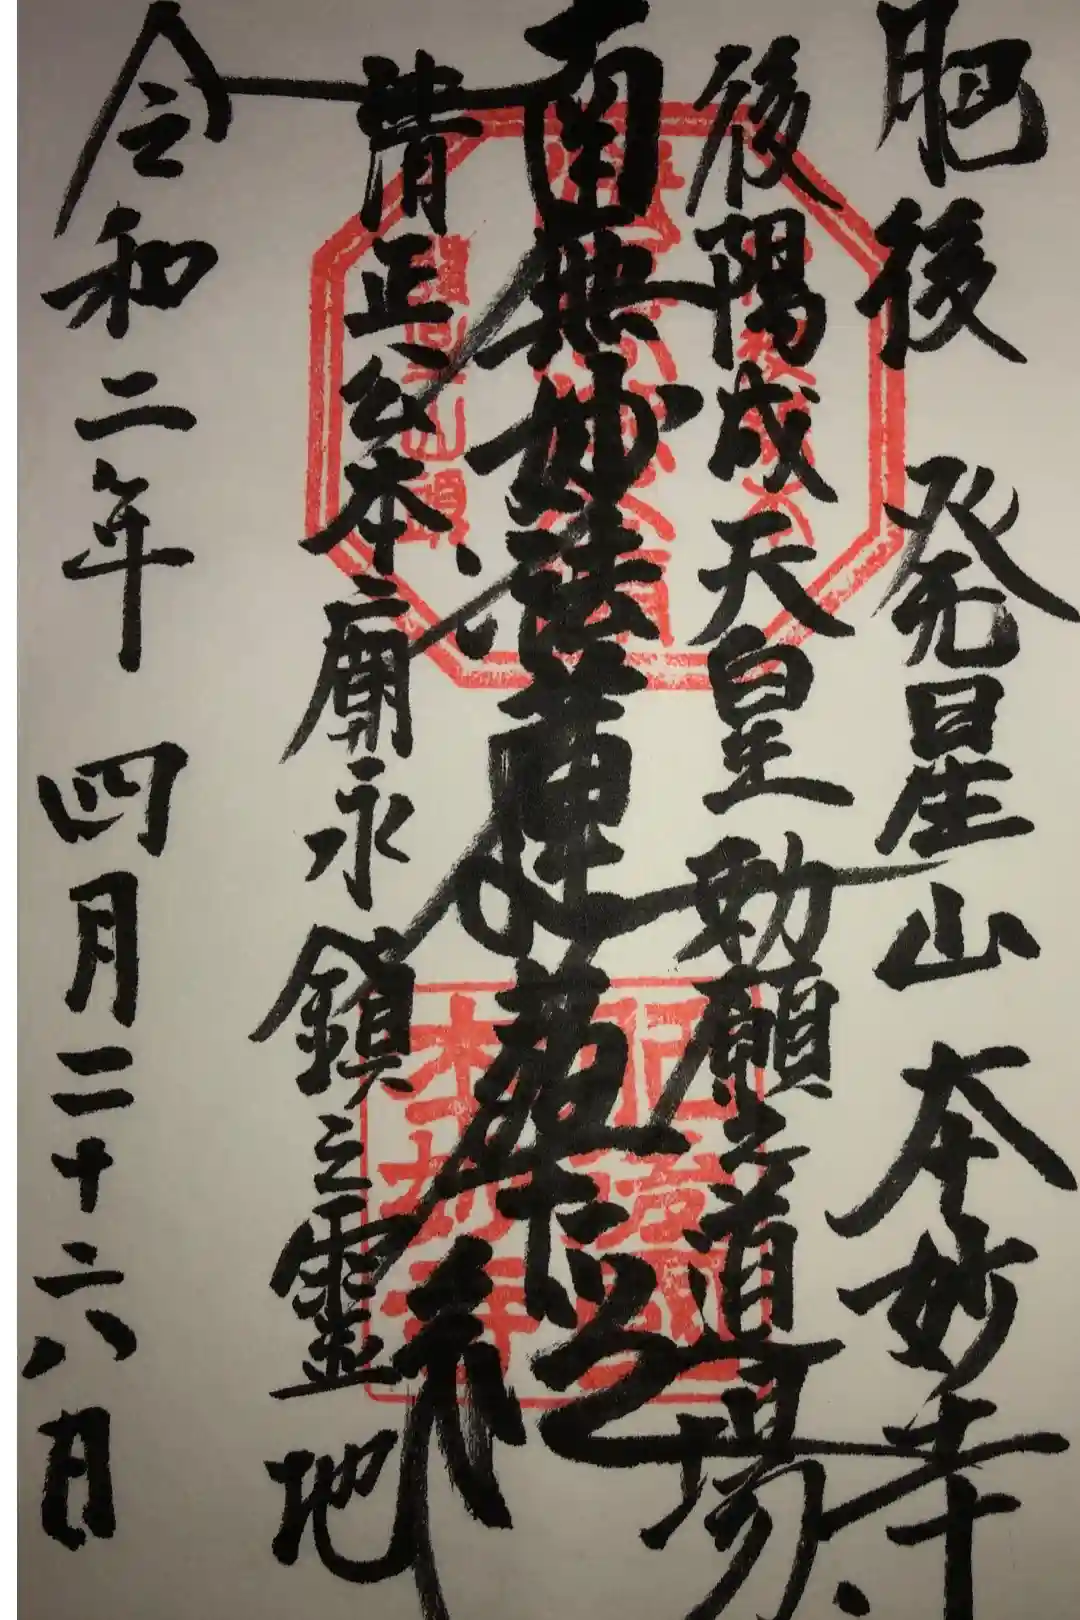 肥後 発星山 本妙寺
後陽成天皇勅願之道場
南無妙法蓮華経
清正公本廟永鎮之霊地
令和二年 四月二十六日
本妙寺